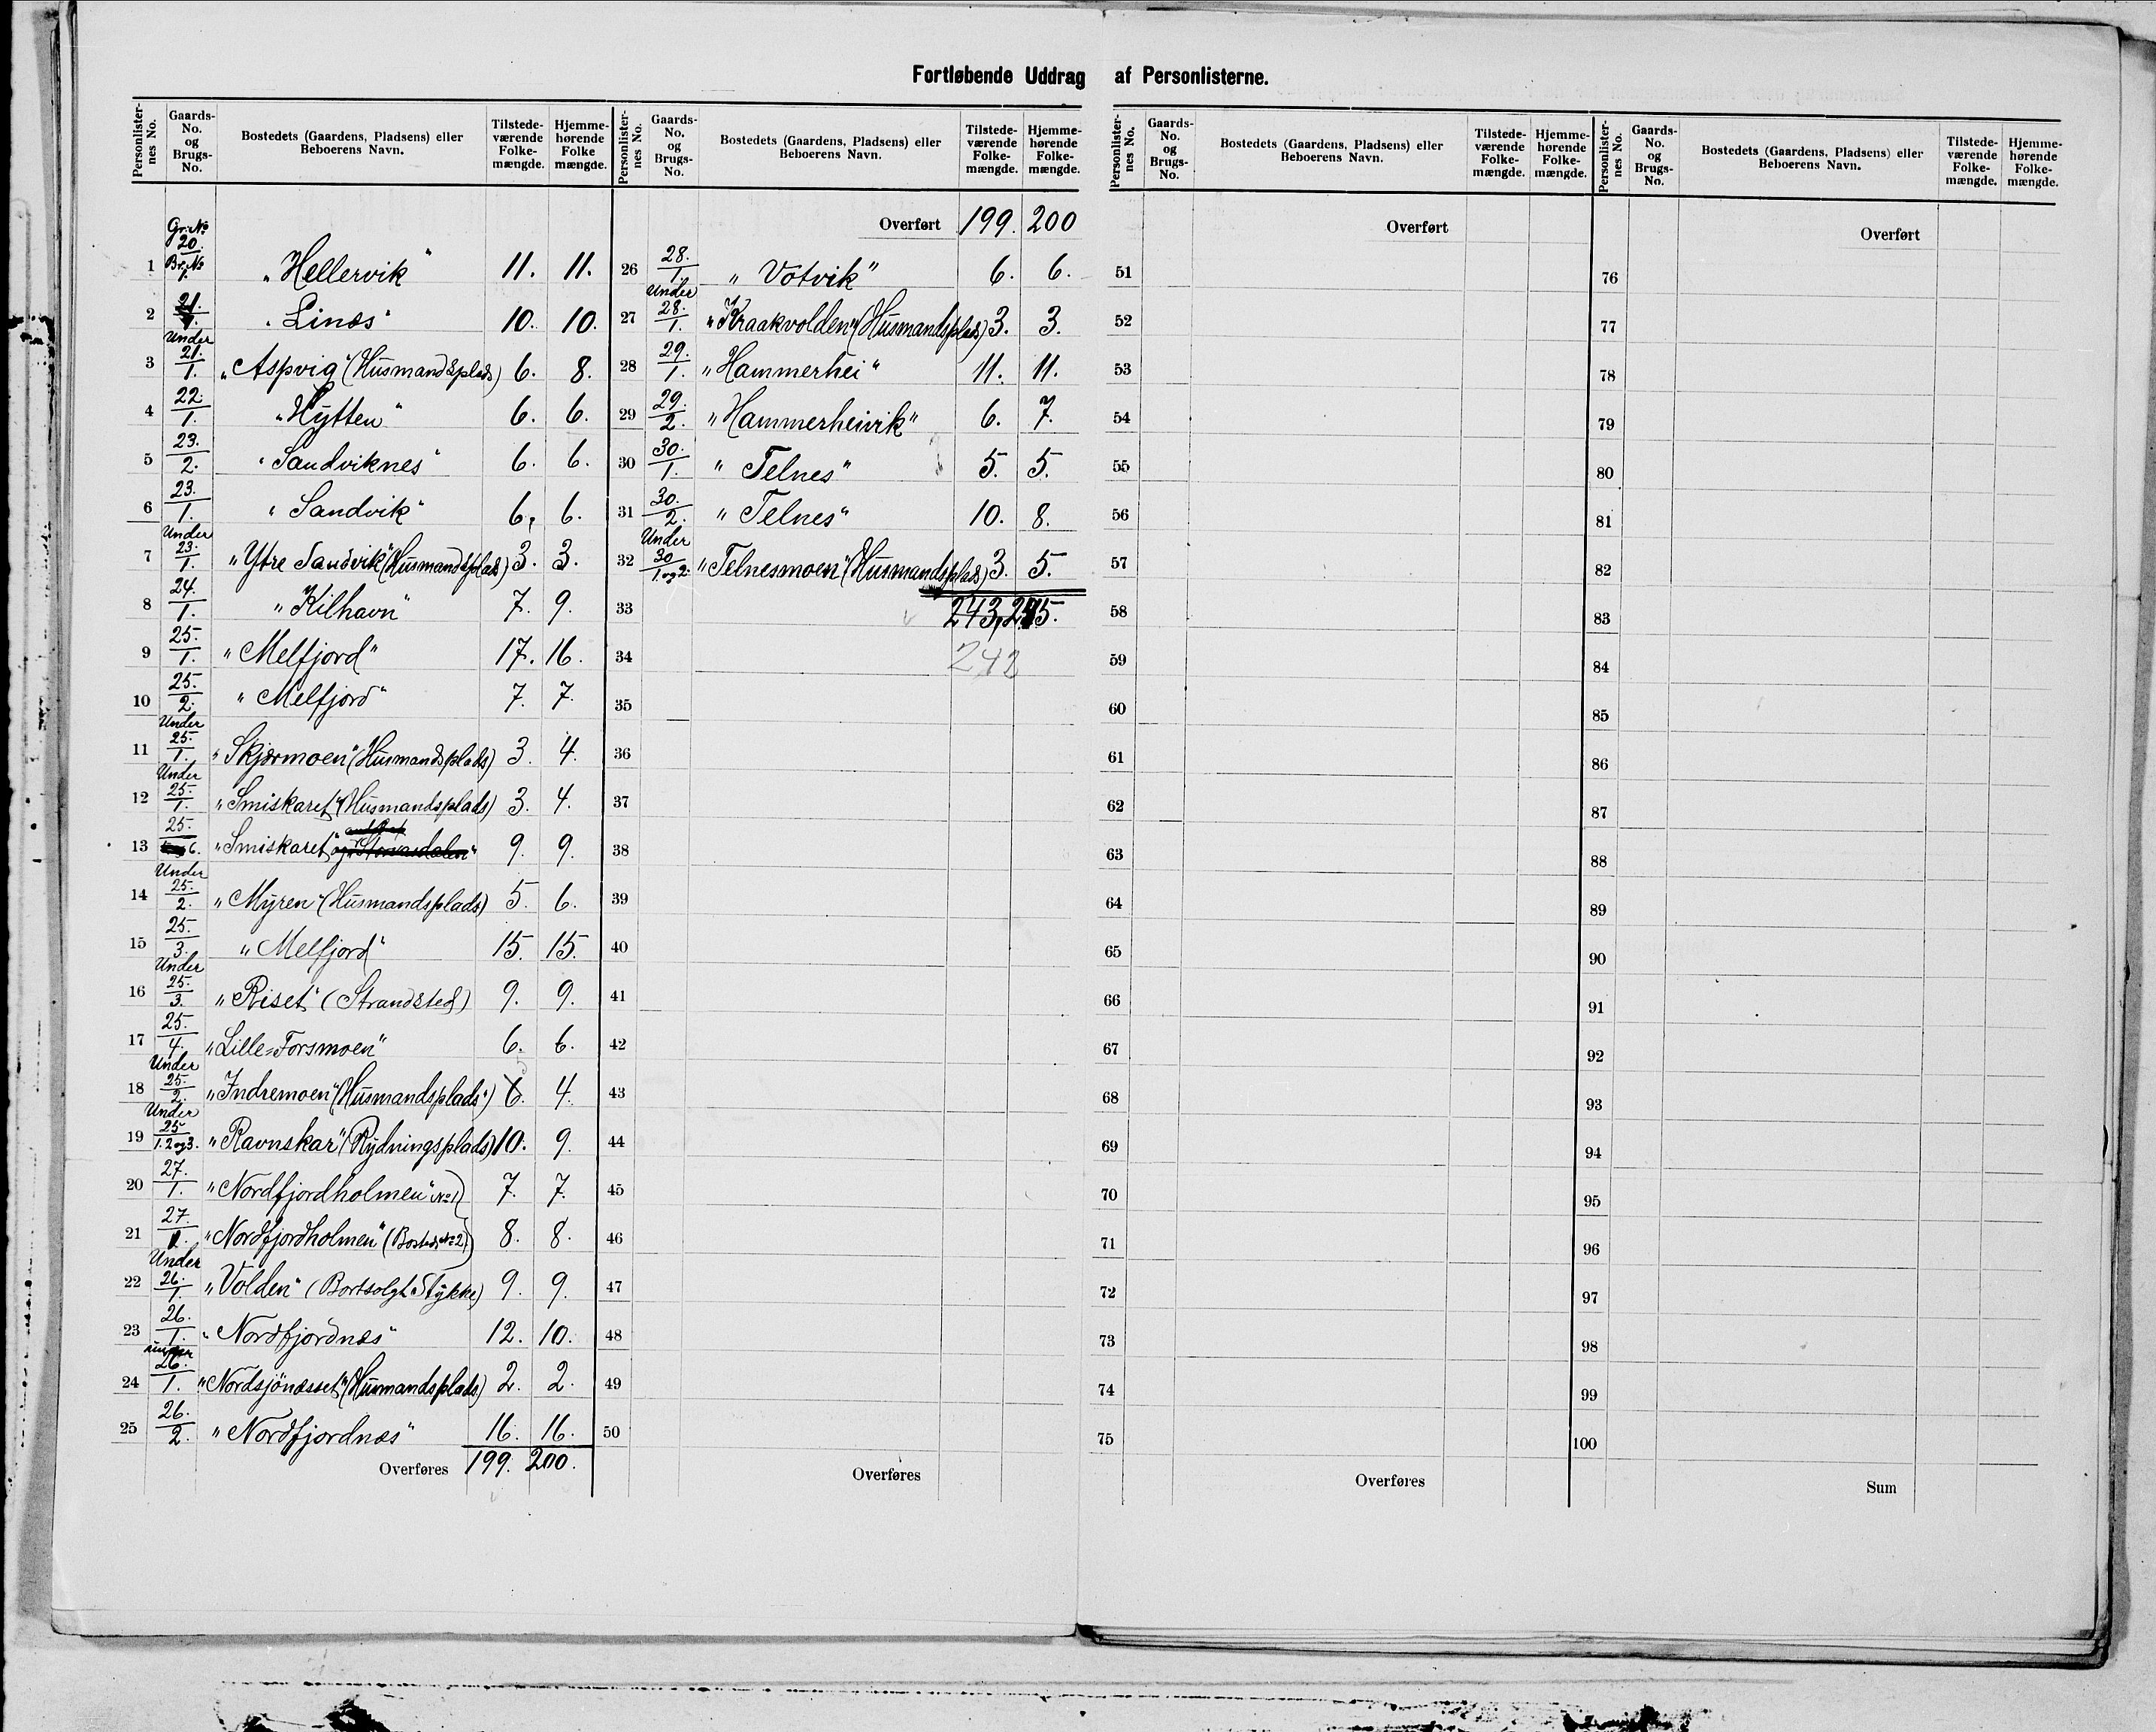 Fortløbende Uddrag af Personlisterne.
Personlister-nes No. Gaards-No. og Brugs-No. Bostedets (Gaardens, Pladsens) eller Beboerens Navn. Tilstede-værende Folke-mængde. Hjemme-hørende Folke mængde.
Gr. No 20. Br. No 1.
1 „Hellervik“ 11. 11.
2 21. 1. „Linæs“ 10. 10.
3 Under 21. 1. „Aspvig“ (Husmandsplads) 6. 8.
4 22. 1. „Hytten“ 6. 6.
5 23. 2. „Sandviknes“ 6. 6.
6 23. 1. „Sandvik“ 6. 6.
7 Under 23. 1. „Ytre Sandvik“ (Husmandsplads) 3. 3.
8 24. 1. „Kilhavn“ 7. 9.
9 25. 1. „Melfjord“ 17. 16.
10 25. 2. „Melfjord“ 7. 7.
11 Under 25. 1. „Skjærmoen“ (Husmandsplads) 3. 4.
12 Under 25. 1. „Smiskaret“ (Husmandsplads) 3. 4.
13 25. 6. „Smiskaret“ og „Storvasdalen“ 9. 9.
14 Under 25. 2. „Myren“ (Husmandsplads) 5. 6.
15 25. 3. „Melfjord“ 15. 15.
16 Under 25. 3. „Riset“ (Strandsted) 9. 9.
17 25. 4. „Lille=Forsmoen“ 6. 6.
18 Under 25. 2. „Indremoen“ (Husmandsplads) 6. 4.
5
19 Under 25 1. 2 og 3. „Ravnskar“ (Rydningsplads) 10. 9.
20 27. 1. „Nordfjordholmen“ No 1) 7. 7.
21 27. 1. „Nordfjordholmen“ (Bosted No 2) 8. 8.
22 Under 26. 1. „Volden“ (Bortsolgt Stykke) 9. 9.
23 26. 1. „Nordfjordnæs“ 12. 10.
24 under 26. 1. „Nordsjönæsset“ (Husmandsplads) 2. 2.
25 26. 2. „Nordfjordnæs“ 16. 16.
Overføres 199. 200.
Personlister-nes No. Gaards-No. og Brugs-No. Bostedets (Gaardens, Pladsens) eller Beboerens Navn. Tilstede-værende Folke-mængde. Hjemme-hørende Folke-mængde.
Overført 199. 200
26 28. 1. „Votvik“ 6. 6.
27 Under 28. 1. „Kraakvolden“ (Husmandsplads) 3. 3.
28 29. 1. „Hammerhei“ 11. 11.
29 29. 2. „Hammerheivik“ 6. 7.
30 30. 1. „Telnes“ 5. 5.
31 30. 2. „Telnes“ 10. 8.
32 Under 30 1. og 2. „Telnesmoen“ (Husmandsplads) 3. 5.
33 243, 245.
34 242
35
36
37
38
39
40
41
42
43
44
45
46
47
48
49
50
Overføres
Personlister-nes No. Gaards-No. og Brugs-No. Bostedets (Gaardens, Pladsens) eller Beboerens Navn. Tilstede-værende Folke-mængde. Hjemme-hørende Folke-mængde.
Overført
51
52
53
54
55
56
57
58
59
60
61
62
63
64
65
66
67
68
69
70
71
72
73
74
75
Overføres
Personlister-nes No. Gaards-No. og Brugs-No. Bostedets (Gaardens, Pladsens) eller Beboerens Navn. Tilstede-værende Folke-mængde. Hjemme-hørende Folke-mængde.
Overført
76
77
78
79
80
81
82
83
84
85
86
87
88
89
90
91
92
93
94
95
96
97
98
99
100
Sum